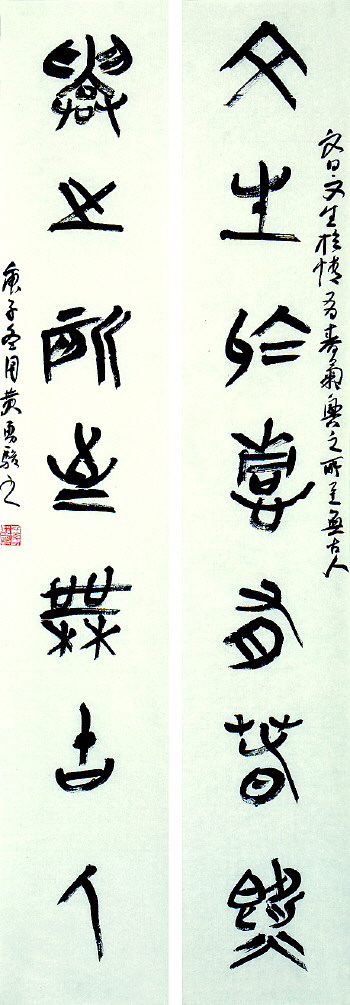 文曰文生於情有春氣興之所至無古人
文生於情有春氣
興之所至無古人
庚子冬月黄勇駿